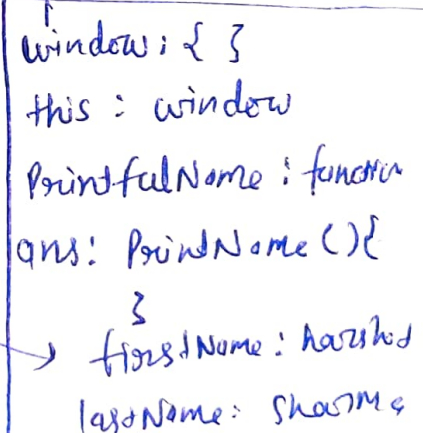 window : { }
this : window
PrintfulName : function
ans : PrintName () {
}
firstName : harshad
lastName : Sharma